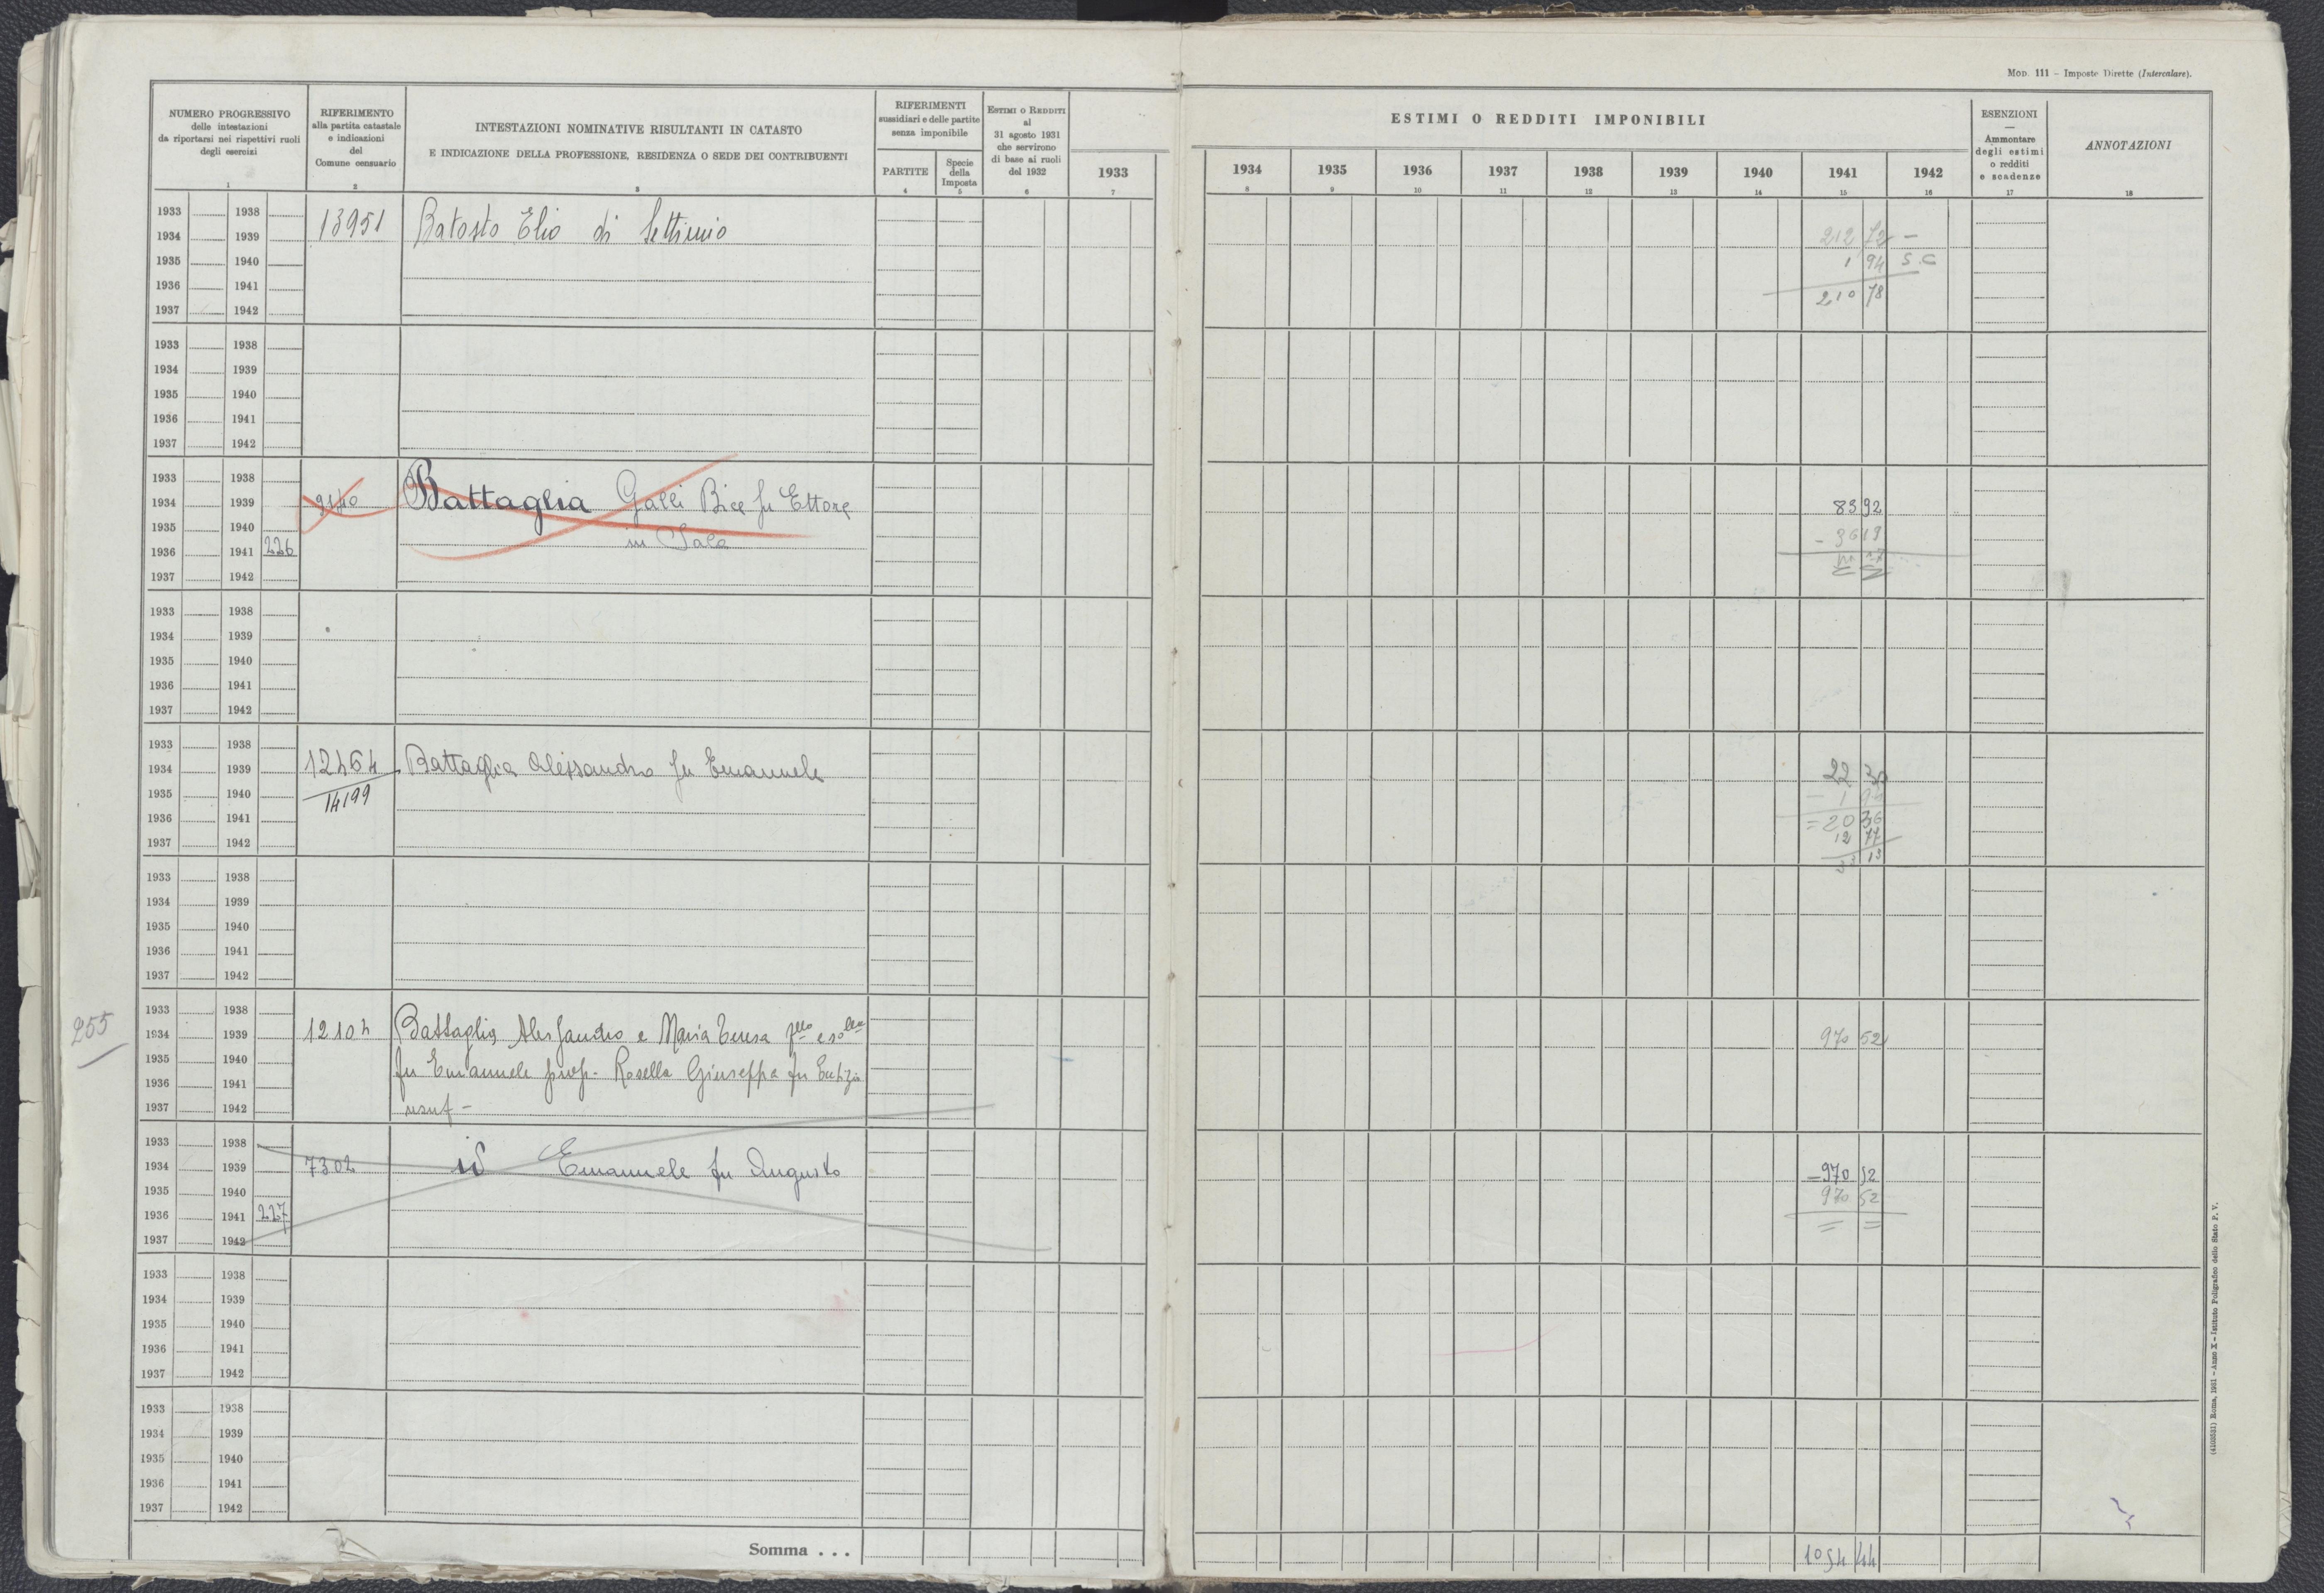 Mod. 111 - Imposte Dirette (Intercalare).
NUMERO PROGRESSIVO
delle intestazioni
da riportarsi nei rispettivi ruoli
degli esercizi
1
RIFERIMENTO
alla partita catastale
e indicazioni
del
Comune censuario
2
INTESTAZIONI NOMINATIVE RISULTANTI IN CATASTO
E INDICAZIONE DELLA PROFESSIONE, RESIDENZA O SEDE DEI CONTRIBUENTI
3
RIFERIMENTI
sussidiari e delle partite
senza imponibile
PARTITE
4
Specie
della
Imposta
5
Estimi o Redditi
al
31 agosto 1931
che servirono
di base ai ruoli
del 1932
6
1933
7
ESTIMI O REDDITI IMPONIBILI
1934 1935 1936 1937 1938 1939 1940 1941 1942
8 9 10 11 12 13 14 15 16
ESENZIONI
—
Ammontare
degli estimi
o redditi
e scadenze
17
ANNOTAZIONI
18
1933 1938
1934 1939 13951 Batosto Elio di Settimio 212 72 -
1935 1940 1 94 S.C
1936 1941 210 78
1937 1942
1933 1938
1934 1939
1935 1940
1936 1941
1937 1942
1933 1938
1934 1939 9140 Battaglia Galli Bice fu Ettore 83 92
1935 1940 in Sala
1936 1941 226
1937 1942
1933 1938
1934 1939
1935 1940
1936 1941
1937 1942
1933 1938
1934 1939 12464 Battaglia Alessandro fu Emanuele 22 30
1935 1940 14199 - 1 94
1936 1941 = 20 36
1937 1942 12 77
33 13
1933 1938
1934 1939
1935 1940
1936 1941
1937 1942
255
1933 1938
1934 1939 12104 Battaglia Alessandro e Maria Teresa 970 52
1935 1940
1936 1941 fu Emanuele prop. Rosella Giuseppa fu
1937 1942 usuf -
1933 1938
1934 1939 7302 id Emanuele fu Augusto - 970 52
1935 1940 970 52
1936 1941 227 = =
1937 1942
1933 1938
1934 1939
1935 1940
1936 1941
1937 1942
1933 1938
1934 1939
1935 1940
1936 1941
1937 1942
Somma . . .
(4103531) Roma, 1931 - Anno X - Istituto Poligrafico dello Stato P. V.